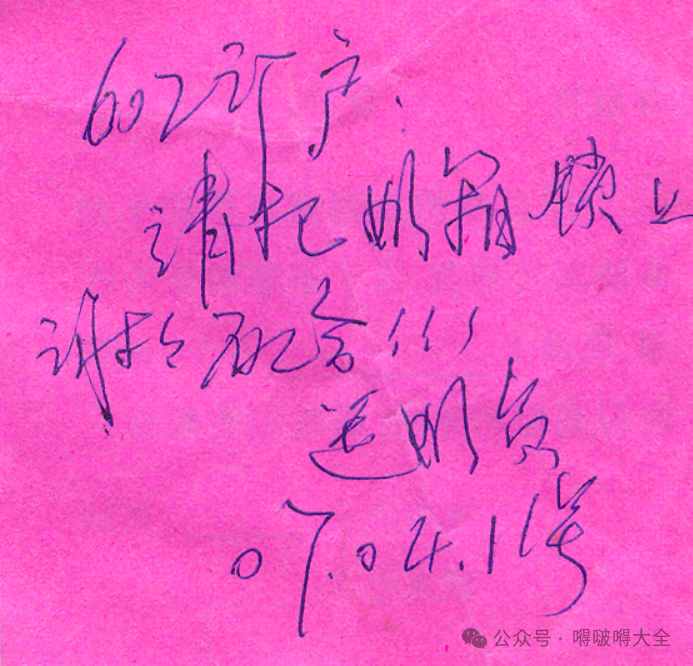 602订户:
请把奶箱锁上
谢谢配合!!!
送奶员
07.04.1号
公众号 · 嘚啵嘚大全